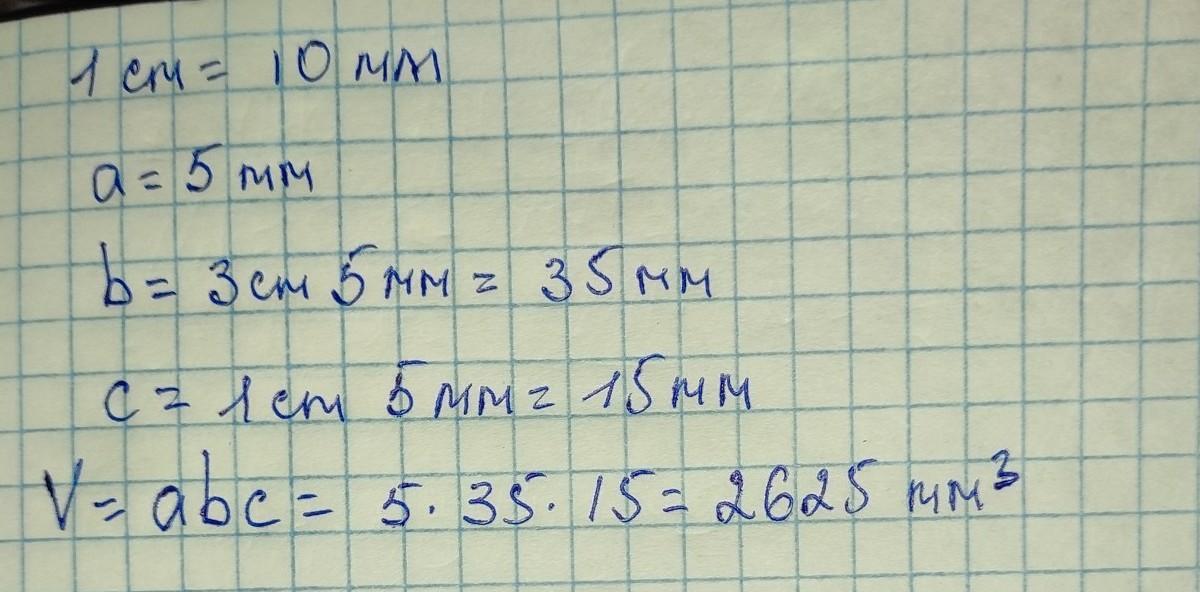 1 см = 10 мм
a = 5 мм
b = 3 см 5 мм = 35 мм
c = 1 см 5 мм = 15 мм
V = abc = 5 · 35 · 15 = 2625 мм³